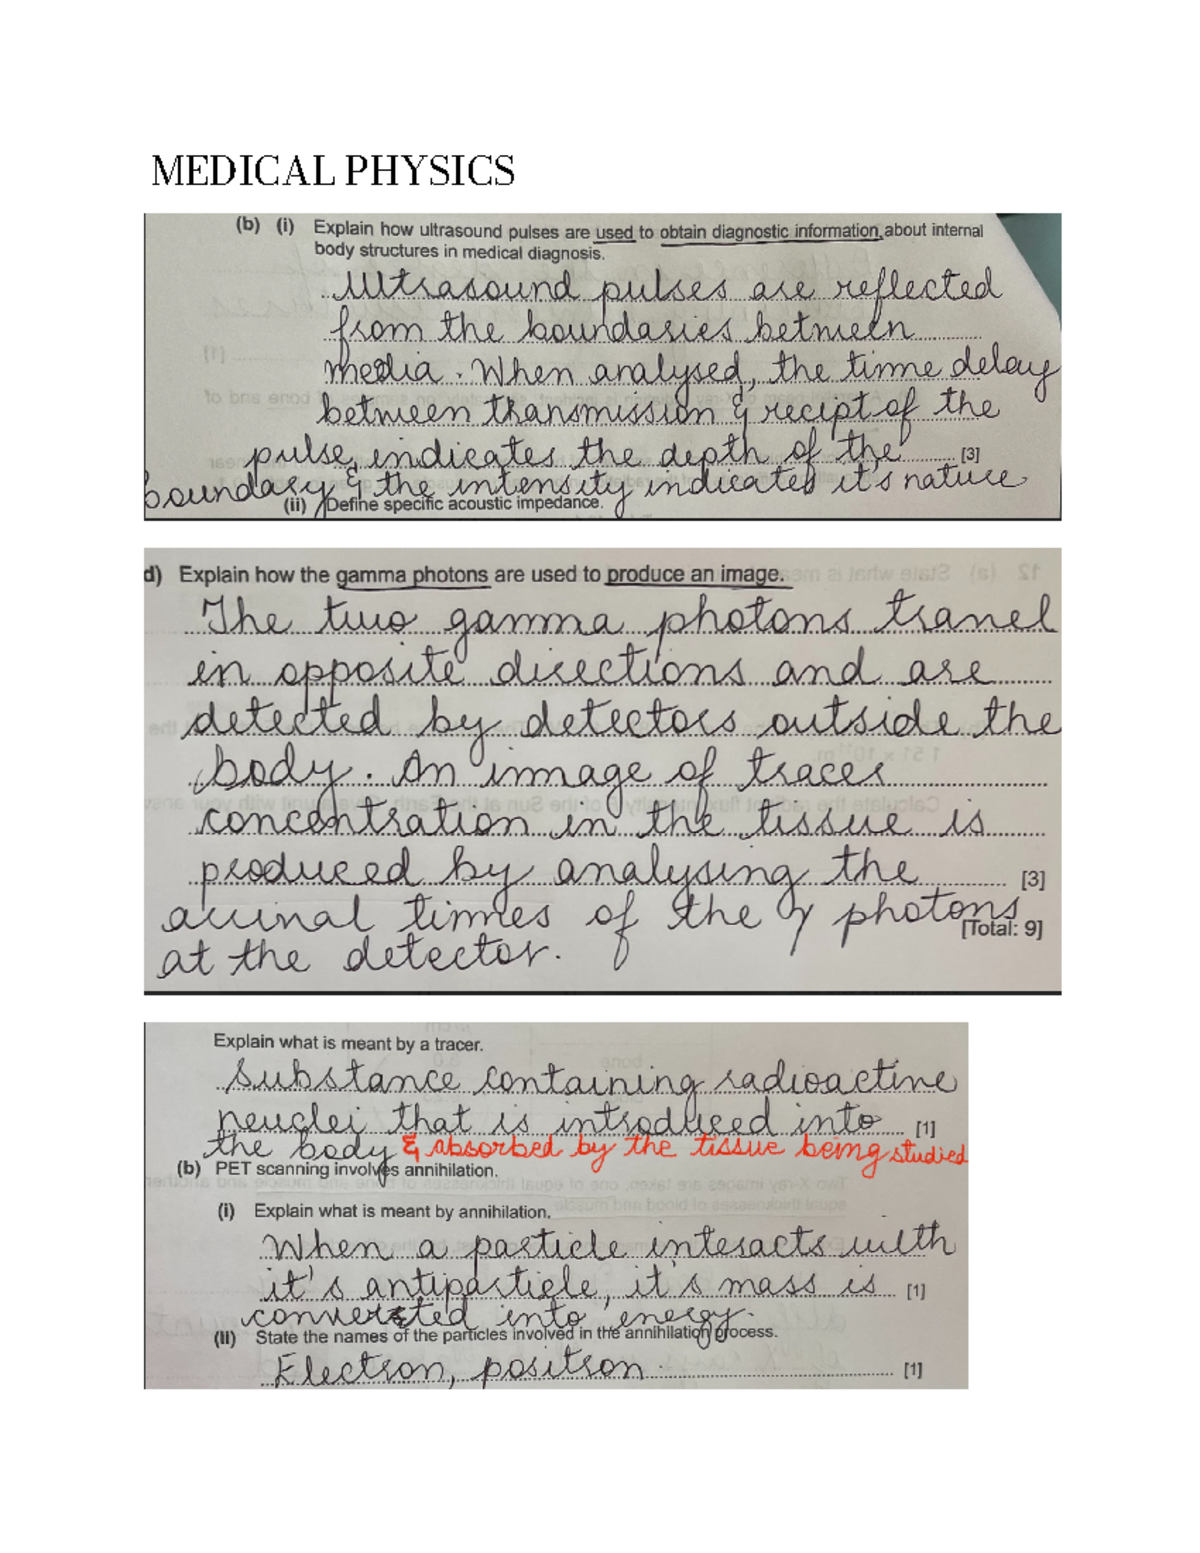 MEDICAL PHYSICS
(b) (i) Explain how ultrasound pulses are used to obtain diagnostic information about internal
body structures in medical diagnosis.
Ultrasound pulses are reflected
from the boundaries between
media. When analysed, the time delay
between transmission & recipt of the
pulse, indicates the depth of the
[3]
boundary & the intensity indicates it's nature
(ii) Define specific acoustic impedance.
d) Explain how the gamma photons are used to produce an image.
The two gamma photons travel
in opposite directions and are
detected by detectors outside the
body. An image of tracer
concentration in the tissue is
produced by analysing the
[3]
arrival times of the γ photons
[Total: 9]
at the detector.
Explain what is meant by a tracer.
Substance containing radioactive
neuclei that is introduced into
[1]
the body & absorbed by the tissue being studied
(b) PET scanning involves annihilation.
(i) Explain what is meant by annihilation.
When a particle interacts with
it's antiparticle, it's mass is
[1]
converted into energy.
(ii) State the names of the particles involved in the annihilation process.
Electron, positron
[1]